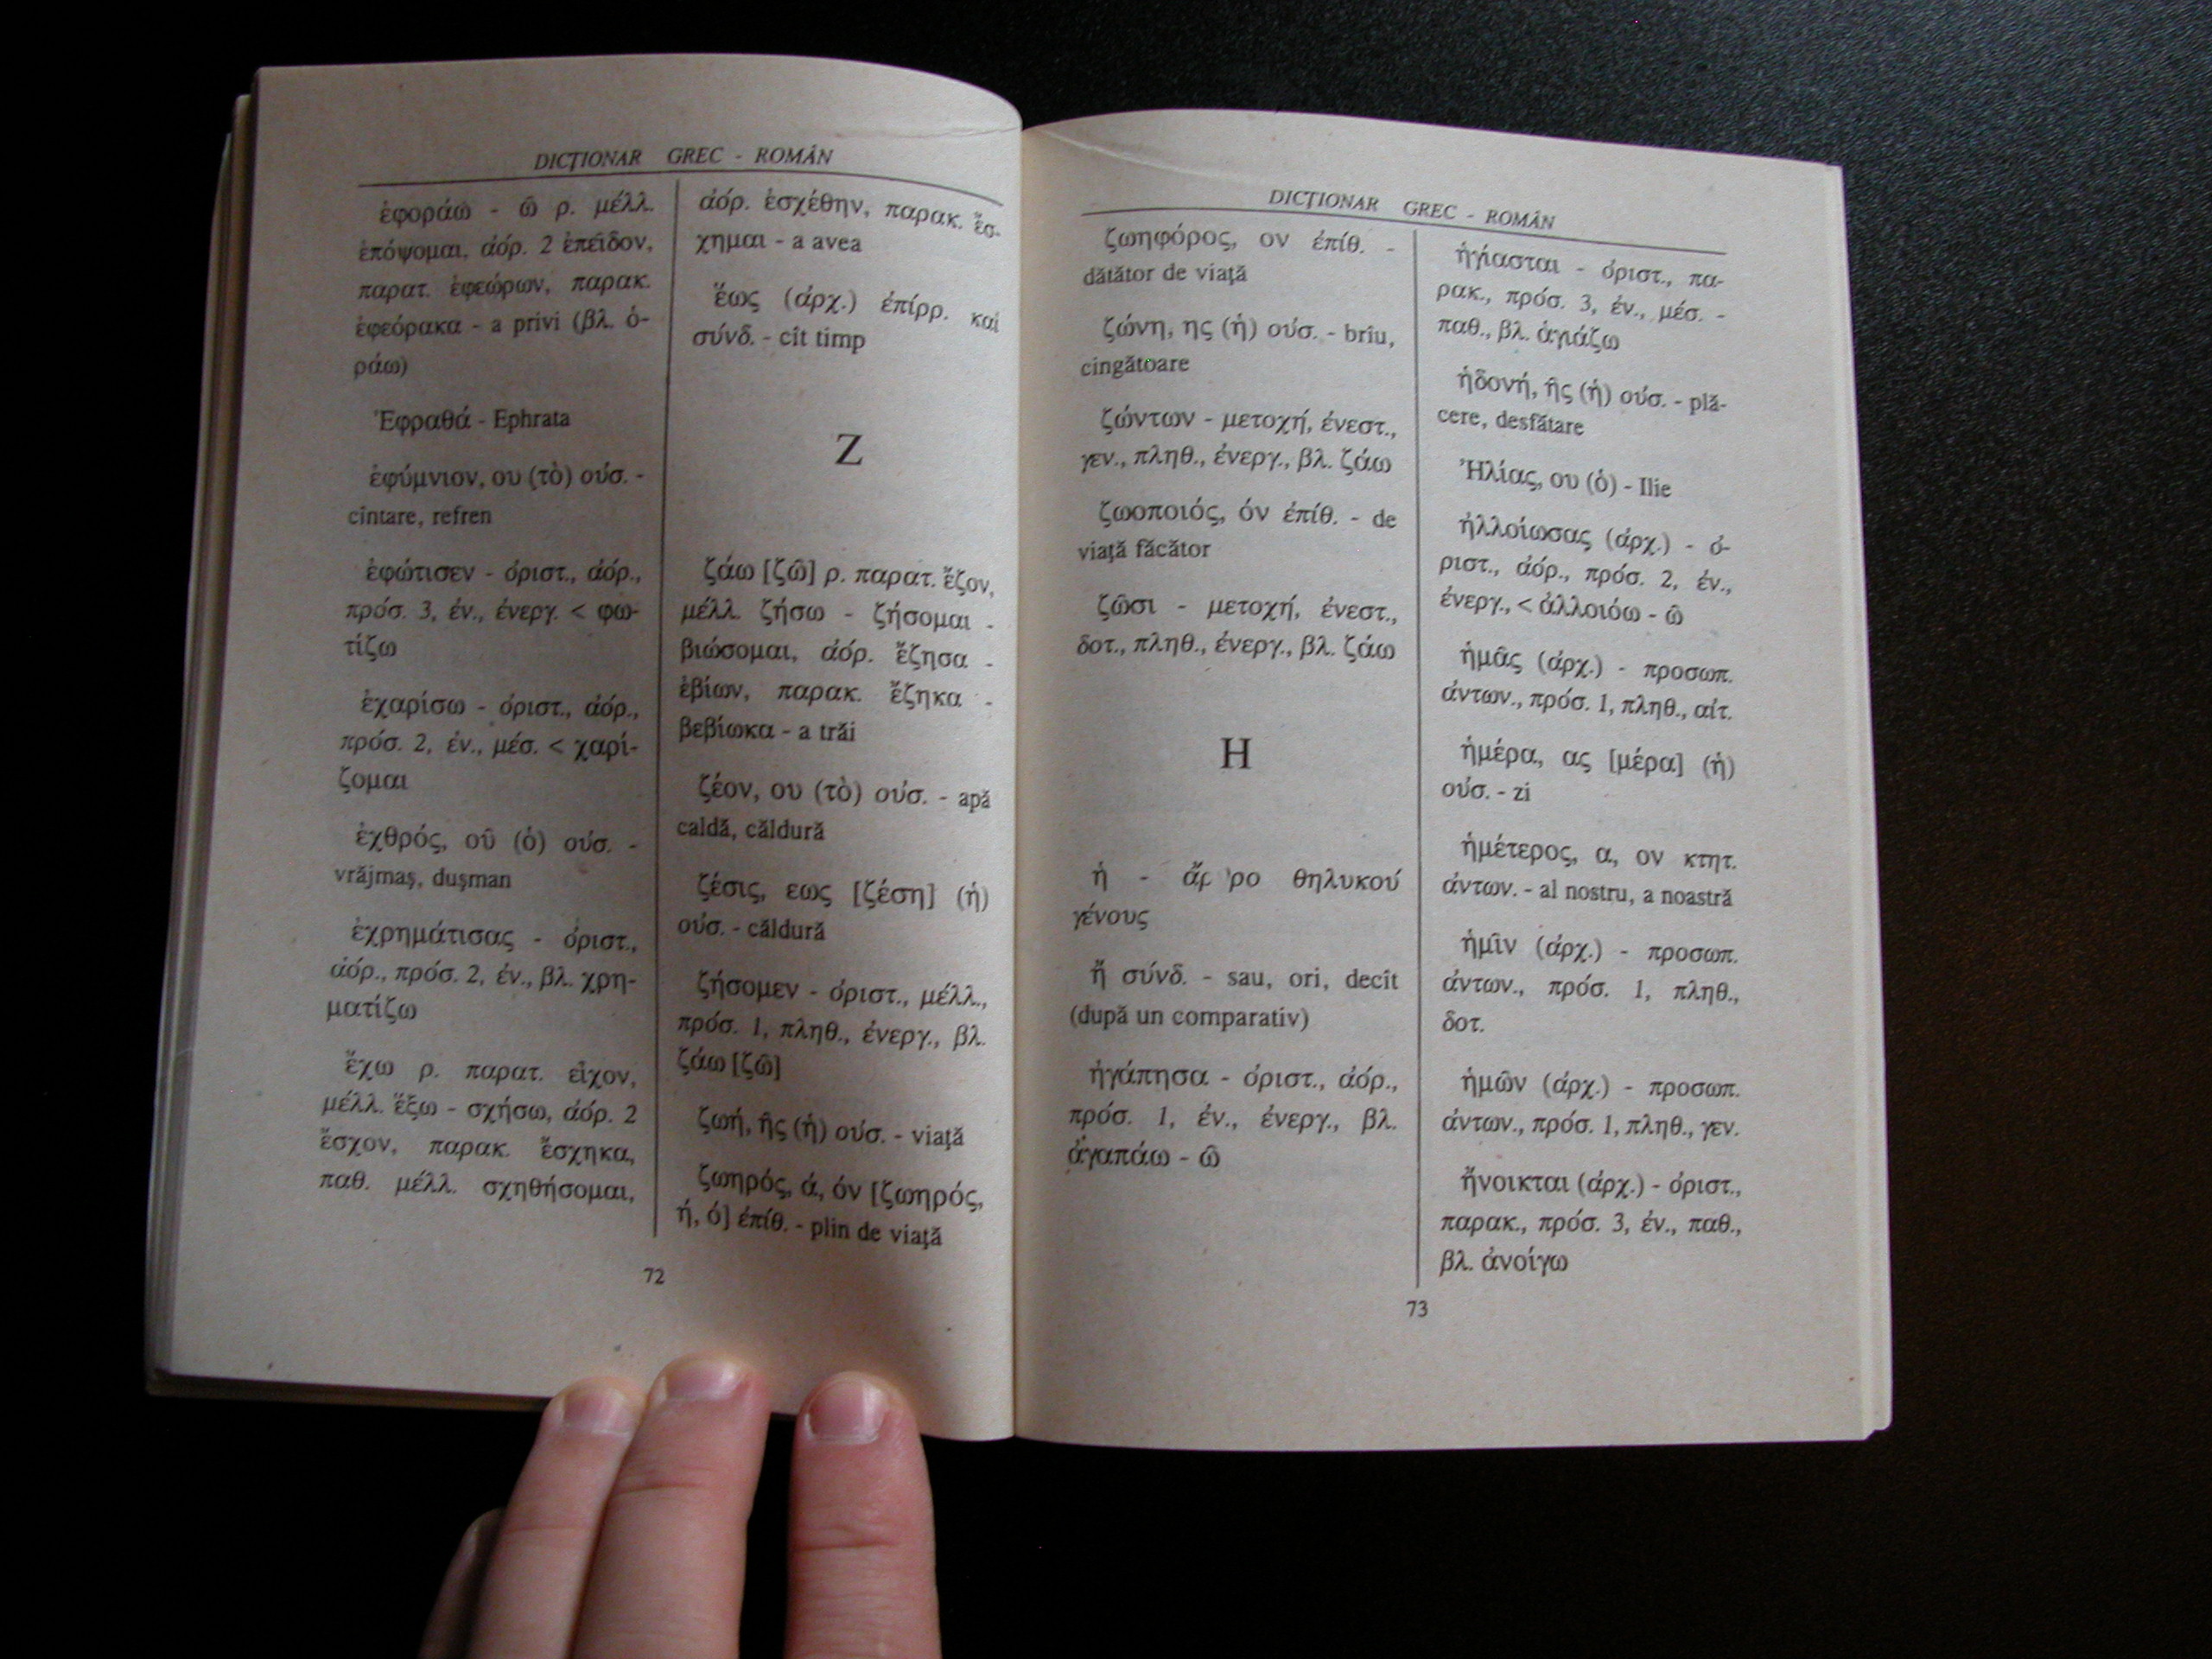 DICŢIONAR GREC - ROMÂN
ἐφοράω - ῶ ρ. μέλλ.
ἐπόψομαι, ἀόρ. 2 ἐπεῖδον,
παρατ. ἐφεώρων, παρακ.
ἐφεόρακα - a privi (βλ. ὁ-
ράω)
Ἐφραθά - Ephrata
ἐφύμνιον, ου (τὸ) οὐσ. -
cîntare, refren
ἐφώτισεν - ὁριστ., ἀόρ.,
πρόσ. 3, ἑν., ἐνεργ. < φω-
τίζω
ἐχαρίσω - ὁριστ., ἀόρ.,
πρόσ. 2, ἑν., μέσ. < χαρί-
ζομαι
ἐχθρός, οῦ (ὁ) οὐσ. -
vrăjmaş, duşman
ἐχρημάτισας - ὁριστ.,
ἀόρ., πρόσ. 2, ἑν., βλ. χρη-
ματίζω
ἔχω ρ. παρατ. εἶχον,
μέλλ. ἕξω - σχήσω, ἀόρ. 2
ἔσχον, παρακ. ἔσχηκα,
παθ. μέλλ. σχηθήσομαι,
ἀόρ. ἐσχέθην, παρακ. ἔσ-
χημαι - a avea
ἕως (ἀρχ.) ἐπίρρ. καὶ
σύνδ. - cît timp
Ζ
ζάω [ζῶ] ρ. παρατ. ἔζον,
μέλλ. ζήσω - ζήσομαι -
βιώσομαι, ἀόρ. ἔζησα -
ἐβίων, παρακ. ἔζηκα -
βεβίωκα - a trăi
ζέον, ου (τὸ) οὐσ. - apă
caldă, căldură
ζέσις, εως [ζέση] (ἡ)
οὐσ. - căldură
ζήσομεν - ὁριστ., μέλλ.,
πρόσ. 1, πληθ., ἐνεργ., βλ.
ζάω [ζῶ]
ζωή, ῆς (ἡ) οὐσ. - viaţă
ζωηρός, ά, όν [ζωηρός,
ή, ό] ἐπίθ. - plin de viaţă
72
DICŢIONAR GREC - ROMÂN
ζωηφόρος, ον ἐπίθ. -
dătător de viaţă
ζώνη, ης (ἡ) οὐσ. - brîu,
cingătoare
ζώντων - μετοχή, ἐνεστ.,
γεν., πληθ., ἐνεργ., βλ. ζάω
ζωοποιός, όν ἐπίθ. - de
viaţă făcător
ζῶσι - μετοχή, ἐνεστ.,
δοτ., πληθ., ἐνεργ., βλ. ζάω
Η
ἡ - θηλυκού
γένους
ἤ σύνδ. - sau, ori, decît
(după un comparativ)
ἠγάπησα - ὁριστ., ἀόρ.,
πρόσ. 1, ἑν., ἐνεργ., βλ.
ἀγαπάω - ῶ
ἡγίασται - ὁριστ., πα-
ρακ., πρόσ. 3, ἑν., μέσ. -
παθ., βλ. ἁγιάζω
ἡδονή, ῆς (ἡ) οὐσ. - plă-
cere, desfătare
Ἠλίας, ου (ὁ) - Ilie
ἠλλοίωσας (ἀρχ.) - ὁ-
ριστ., ἀόρ., πρόσ. 2, ἑν.,
ἐνεργ., < ἀλλοιόω - ῶ
ἡμᾶς (ἀρχ.) - προσωπ.
ἀντων., πρόσ. 1, πληθ., αἰτ.
ἡμέρα, ας [μέρα] (ἡ)
οὐσ. - zi
ἡμέτερος, α, ον κτητ.
ἀντων. - al nostru, a noastră
ἡμῖν (ἀρχ.) - προσωπ.
ἀντων., πρόσ. 1, πληθ.,
δοτ.
ἡμῶν (ἀρχ.) - προσωπ.
ἀντων., πρόσ. 1, πληθ., γεν.
ἤνοικται (ἀρχ.) - ὁριστ.,
παρακ., πρόσ. 3, ἑν., παθ.,
βλ. ἀνοίγω
73